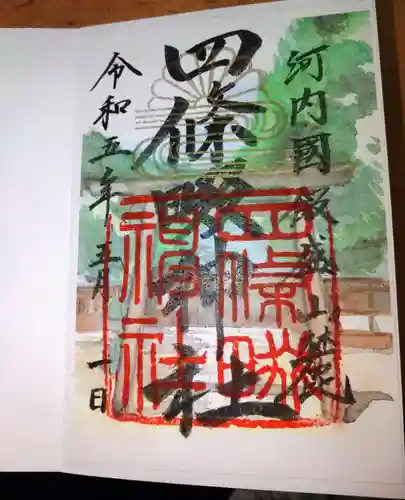 河内國飯盛山麓
四條畷神社
四條畷
神社
令和五年三月一日